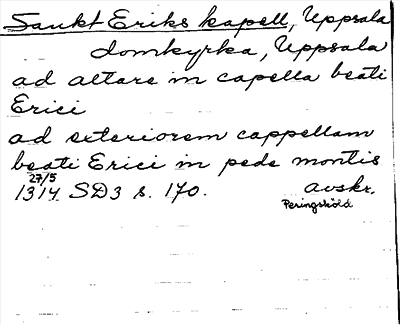 Sankt Eriks kapell, Uppsala
domkyrka, Uppsala
ad altare in capella beati
Erici
ad exteriorem cappellam
beati Erici in pede montis
27/5
1314 SD3 s. 170. avskr.
Peringsköld